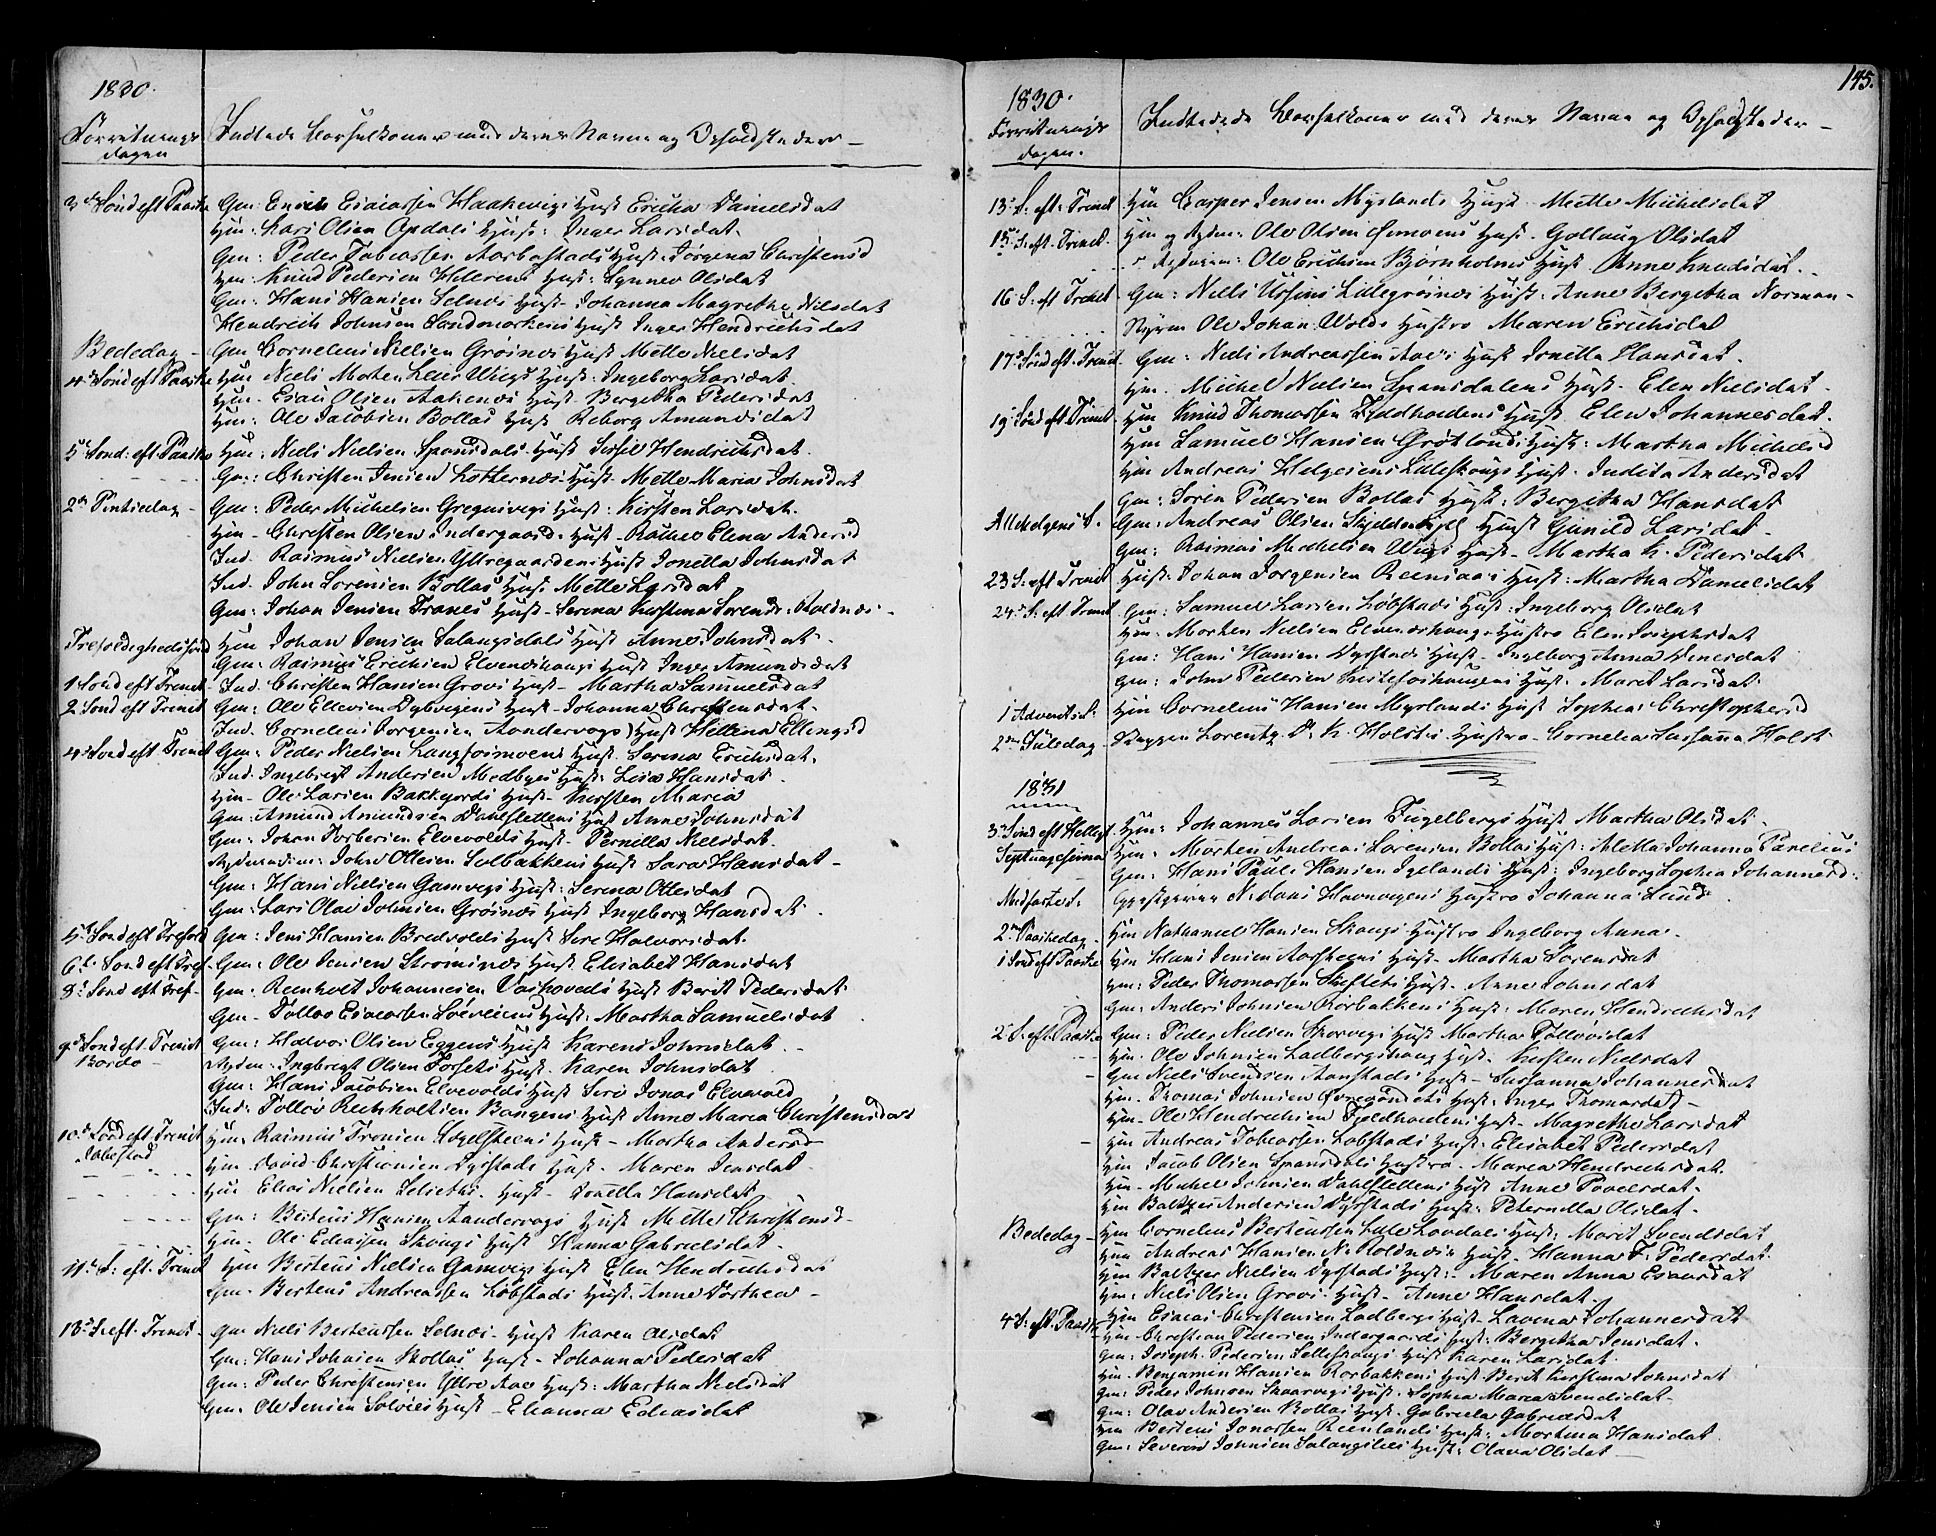 1830.
Forretnings dagen
Indledede Barselkoner med deres Navne og Opholdsteder
3d Sønd eft Paaske Gm: Enich Esaiassen Haakevigs Hust Ericka Danielsdat
Hm: Lars Olsen Apdals Hust: Inger Larsdat.
Gm: Peder Tobiassen Aarbogstads Hust: Jørgena Christensd
Hm: Knud Pedersen Hust: Synnev Olsdat
Gm: Hans Hansen Selnes Hust- Johanna Magretha Nilsdat
Hendrich Johnsen Sandmorkens Hust Inger Hendrichsdat
Bededag - Gm Cornelius Nielsen Grøinæs Hust Mette Nielsdat
4de Sønd eft Paaske Hm Niels Morten Wiigs Hust: Ingeborg Larsdat.
Hm- Esau Olsen Aakenes Hust- Bergetha Pedersdat
Hm: Ole Jacobsen Bollas Hust Reborg Amundsdat
5te Sønd. eft. Paaske Hm: Niels Nielsen Spansdals Hust Sissel Hendrichsdat.
Gm: Christen Jensen Hust- Mette Maria Johnsdat
2den Pintsedag - Gm: Peder Michelsen Gregusvigs Hust: Kirsten Larsdat.
Hm - Christen Olsen Indergaard. Hust- Elena Andersd
Ind. Rasmus Nielsen Yttregaardens Hust Jonetta Johnsdat
Ind. John Sorensen Bollas Hust. Mette Larsdat
Gm: Johan Jensen Tranes Hust- Serena Kirstina Sorensd.
Trefoldigheds sønd Hm Johan Jensen Salangsdals Hust Anne Johnsdat.
Gm: Rasmus Erichsen Elvenshaugs Hust Inger Amundsdat
1 Sønd eft Trenit- Ind. Christen Hansen Grovs Hust- Martha Samuelsdat
2 Sønd eft Trenit Gm: Ole Ellevsen Dybvigens Hust- Johanna Christensdat-
Ind. Cornelius Jorgensen Aandervogs Hust Hellena Ellengsd
4de Sønd eft. Trenit Gm: Peder Nielsen Langfoirmoens Hust. Serena Erichsdat.
Ind. Ingebrigt Andersen Medbyes Hust: Lisa Hansdat.
Hm- Ole Larsen Bakkejords Hust- Kirsten Maria
Gm: Amund Amundsen Dahlslettens Hust Anne Johnsdat
Gm: Johan Torbersen Elvevolds Hust- Pernilla Nielsdat.
Rydn: John Ottesen Solbakkens Hust Sara Hansdat-
Gm: Hans Nielsen Gamvigs Hust: Serena Ottesdat
Gm: Lars Olai Johnsen Grøines Hust Ingeborg Hansdat.
5te Sønd eft Trefold Gm: Jens Hansen Bredvolds Hust Sere Halvorsdat.
6te Sønd eft Tref- Gm: Ole Jensen Stromsnes Hust. Elisabet Hansdat
8de Sønd eft Tref- Gm: Reinholt Johannesen Vashoveds Hust Berit Pedersdat.
Gm- Tollev Esaiassen Hust: Martha Samuelsdat
9de Sønd eft. Trenit Gm: Halvor Olsen Eggens Hust Karen Johnsdat.
Bardo - Ryden: Ingbregt Olsen Fossets Hust. Karen Johnsdat.
Gm: Hans Jacobsen Elvevolds Hust Siri Jonas Elvevold
Ind: Tollev Reinholtsen Bangens Hust Anne Maria Christensdat
10de Sønd eft. Trenit Hm. Rasmus Tronsen Hust - Martha Andersd
Ibbestad Hm. David Christiansen Dyrstads Hust. Maren Jensdat.
Hm Elias Nielsen Selseths. Hust- Jonetta Hansdat.
Gm: Bertens Hansen Aandervogs Hust Mette Christensd-
Hm. Ole Ediasen Skougs Hust Hanna Gabrielsdat-
11te S: eft. Trenit Hm Bertens Nielsen Gamvigs Hust Elen Hendrichsdat
Gm. Bertens Andreassen Løbstads Hust: Anne Dorthea -
13de S: eft. Trenit- Gm Niels Bertensen Selnes- Hust Karen Olsdat
Gm: Hans Johnsen Hust- Johanna Pedersdat
Gm: Peder Christensen Yttre Aae Hust: Martha Nielsdat
Gm: Ole Jensen Hust- Elianna Ediasdat
145.
1830.
Forretnings dagen.
Indledede Barselkoner med deres Navne og Opholdsteder -
13de S: eft: Trenit Hm Casper Jensen Myrlands Hust Mette Michelsdat
15de S: eft. Trenit. Hm og Ryden: Ole Olsen Hust. Gollaug Olsdat
Ole Erichsen Bjørnholms Hust Anne Knudsdat.
16 S: eft Trenit Gm: Niels Ursins Lillegrøines Hust: Anne Bergetha Norman-
Ole Johan Wolds Hustro Maren Erichsdat
17de Sønd eft. Trenit Gm: Niels Andreassen Aaes Hust Jonetta Hansdat.
Hm. Michel Nielsen Spansdalens Hust- Elen Nielsdat-
19de Sønd eft Trenit- Hm Knud Thomassen Fieldhardens Hust. Elen Johannesdat.
Hm Samuel Hansen Grøtlands Hust: Martha Michelsd
Hm Andreas Helgesens Lilleskougs Hust. Indita Andersdat
Gm: Soren Pedersen Bollas Hust: Bergetha Hansdat
Allehelgens S. Gm: Andreas Olsen Hust Gunild Larsdat.
Gm: Rasmus Michelsen Wiigs Hust- Martha K. Pedersdat
23 S: eft Trenit Hust: Johan Jorgensen Hust: Martha Danielsdat
24de S: eft Trenit Gm: Samuel Larsen Løbstads Hust: Ingeborg Olsdat
Hm: Morten Nielsen Elvenshaugs Hustro Elen Josephsdat
Gm: Hans Hansen Dyrstads Hust- Ingeborg Anna
Gm: John Pedersen Hust: Maret Larsdat.
1 Advents S: Hm Cornelius Hansen Myrlands Hust Sophia Christophersd
2den Juledag - Lorentz D. K. Holsts Hustro- Cornelia Sussanna Holst
1831
3de Sønd eft Hellig: Hm: Johannes Larsen Fugelbergs Hust Martha Olsdat.
Septuagesima Hm: Morten Andreas Sorensen Bollas Hust: Aletta Johanna
Gm: Hans Pauli Hansen Hust: Ingeborg Sophia Johannesd:
Midfaste S: Giestgiver N. Daas Havnvigens Hustro Johanna Lund
2den Paaskedag - Hm Nathanael Hansen Skougs Hustro Ingeborg Anna.
1 Sønd eft Paaske Hm Hans Jensen Hust- Martha Sorensdat
Hm: Peder Thomassen Hust- Anne Johnsdat
Gm: Anders Johnsen Rorbakkens Hust: Maren Hendrichsdat
2den S. eft. Paaske Gm: Peder Nielsen Skorvigs Hust Martha Tollevsdat
Hm: Ole Johnsen Ladbergshaug Hust. Kirsten Nielsdat
Gm Niels Svendsen Aanstads Hust- Sussanna Johannesdat
Hm- Thomas Johnsen Hust: Inger Thomasdat-
Hm- Ole Hendrichsen Fjeldhardens Hust- Magretha Larsdat
Hm Andreas Tobiassen Løbstads Hust: Elisabet Pedersdat
Hm Jacob Olsen Spansdals Hustro- Maren Hendrichsdat.
Hm- Michel Johnsen Dahlslettens Hust Anne Povelsdat.
Hm Baltzer Andersen Dyrstads Hust: Peternella Olsdat.
Bededag - Hm Cornelius Bertensen Lille Lavdals Hust: Marit Svendsdat
Hm Andreas Hansen Hust- Hanna F: Pedersdat.
Hm Baltzer Nielsen Dyrstads Hust:- Maren Anna Esausdat
Hm: Niels Olsen Grovs. Hust- Anne Hansdat.
4 S: eft. Paaske Hm Esaias Christensen Ladbergs Hust- Lavina Johannesdat
Hm- Christian Pedersen Indergaards Hust: Bergetha Jensdat.
Gm: Joseph Pedersen Lilleskougs Hust Karen Larsdat.
Hm- Benjamin Hansen Rorbakkens Hust- Berit Kirstina Johnsdat
Gm: Peder Johnsen Skaarvigs Hust- Sophia Maria Svendsdat-
Gm: Olav Andersen Bollas Hust- Gabriela Gabrielsdat
Hm Bertens Jonassen Reenlands Hust: Martina Hansdat.
Gm: Severin Johnsen Salangslies Hust: Olava Olsdat -